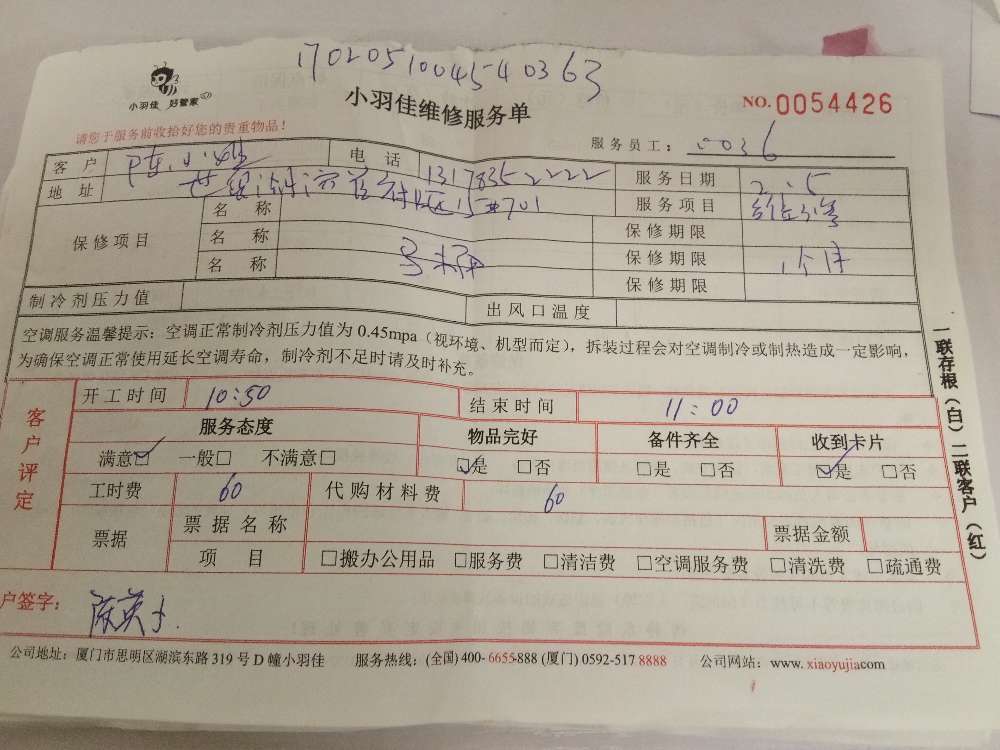 1702051004540363
小羽佳 好管家
小羽佳维修服务单
NO.0054426
请您于服务前收拾好您的贵重物品!
服务员工: 0036
客户 陈小姐 电话 13178352222 服务日期 2.5
地址 15#701 服务项目 维修
保修项目 名称 保修期限
名称 保修期限 1个月
名称 保修期限
制冷剂压力值 出风口温度
空调服务温馨提示: 空调正常制冷剂压力值为 0.45mpa (视环境、机型而定), 拆装过程会对空调制冷或制热造成一定影响,
为确保空调正常使用延长空调寿命, 制冷剂不足时请及时补充。
客户评定
开工时间 10:50 结束时间 11:00
服务态度 物品完好 备件齐全 收到卡片
满意☑ 一般□ 不满意□ ☑是 □否 □是 □否 ☑是 □否
工时费 60 代购材料费 60
票据 票据名称 票据金额
项目 □搬办公用品 □服务费 □清洁费 □空调服务费 □清洗费 □疏通费
户签字:
一联存根(白)二联客户(红)
公司地址: 厦门市思明区湖滨东路 319 号 D 幢小羽佳 服务热线: (全国) 400-6655-888 (厦门) 0592-517 8888 公司网站: www.xiaoyujiacom